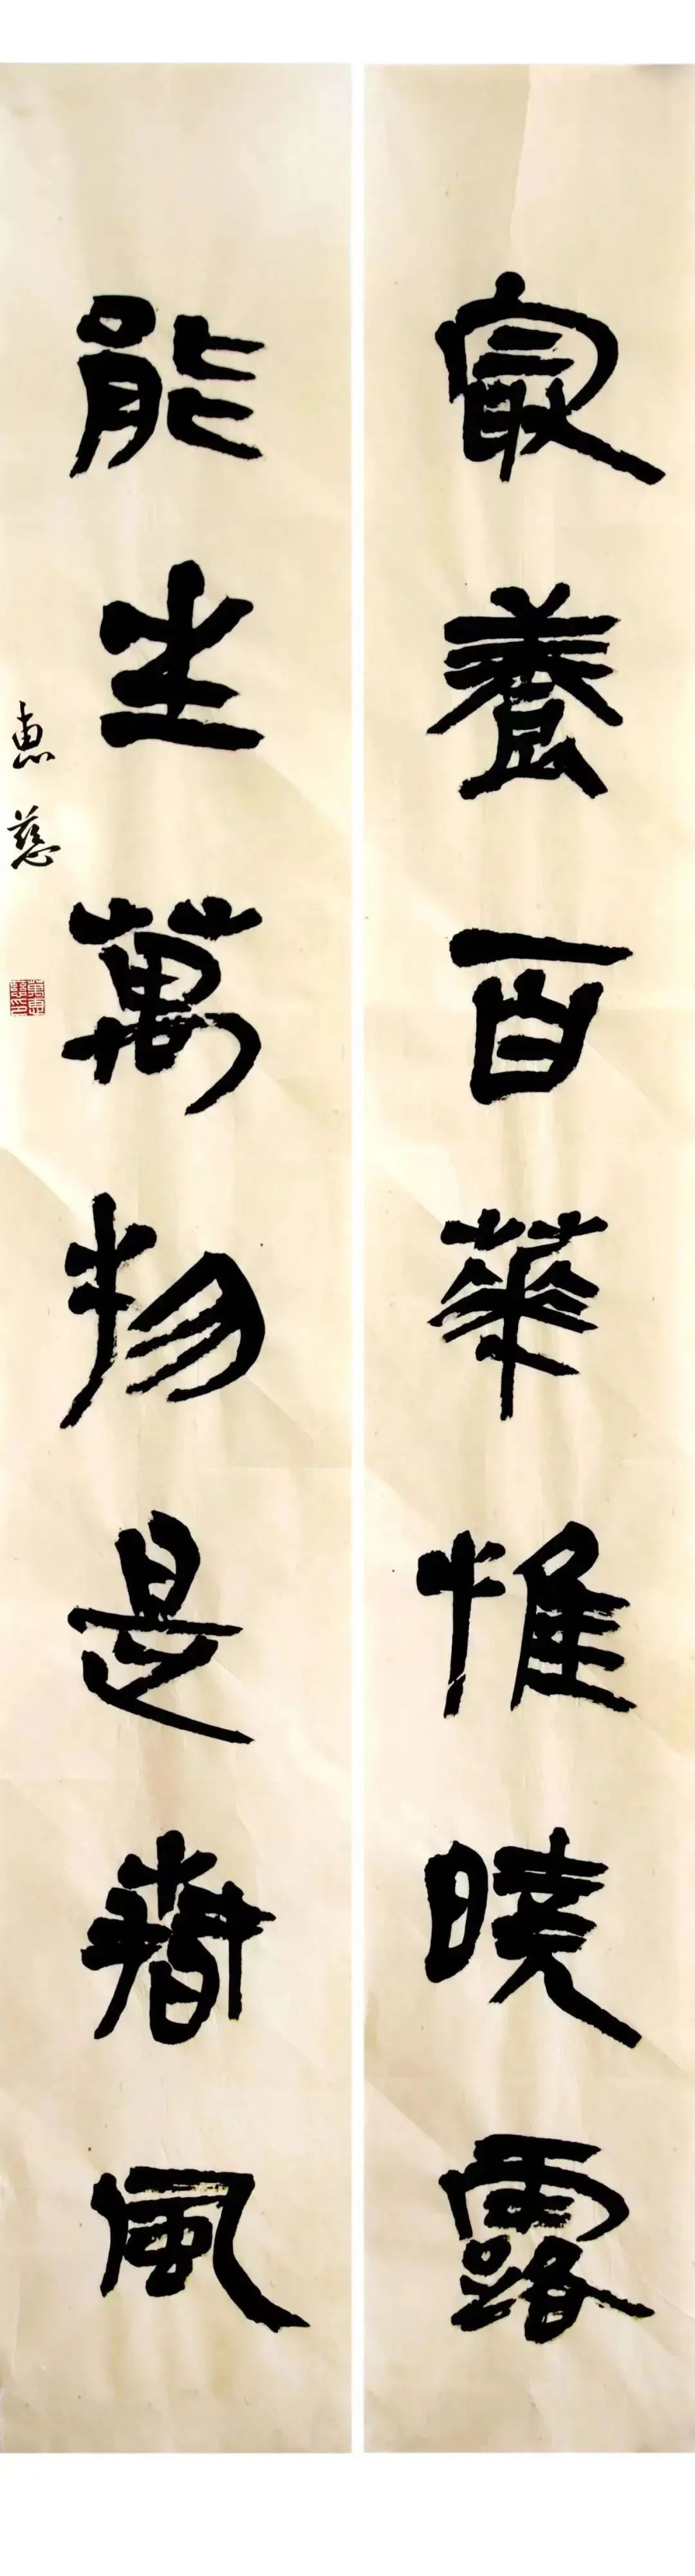 寂養百華惟曉露
能生萬物是春風
惠慈